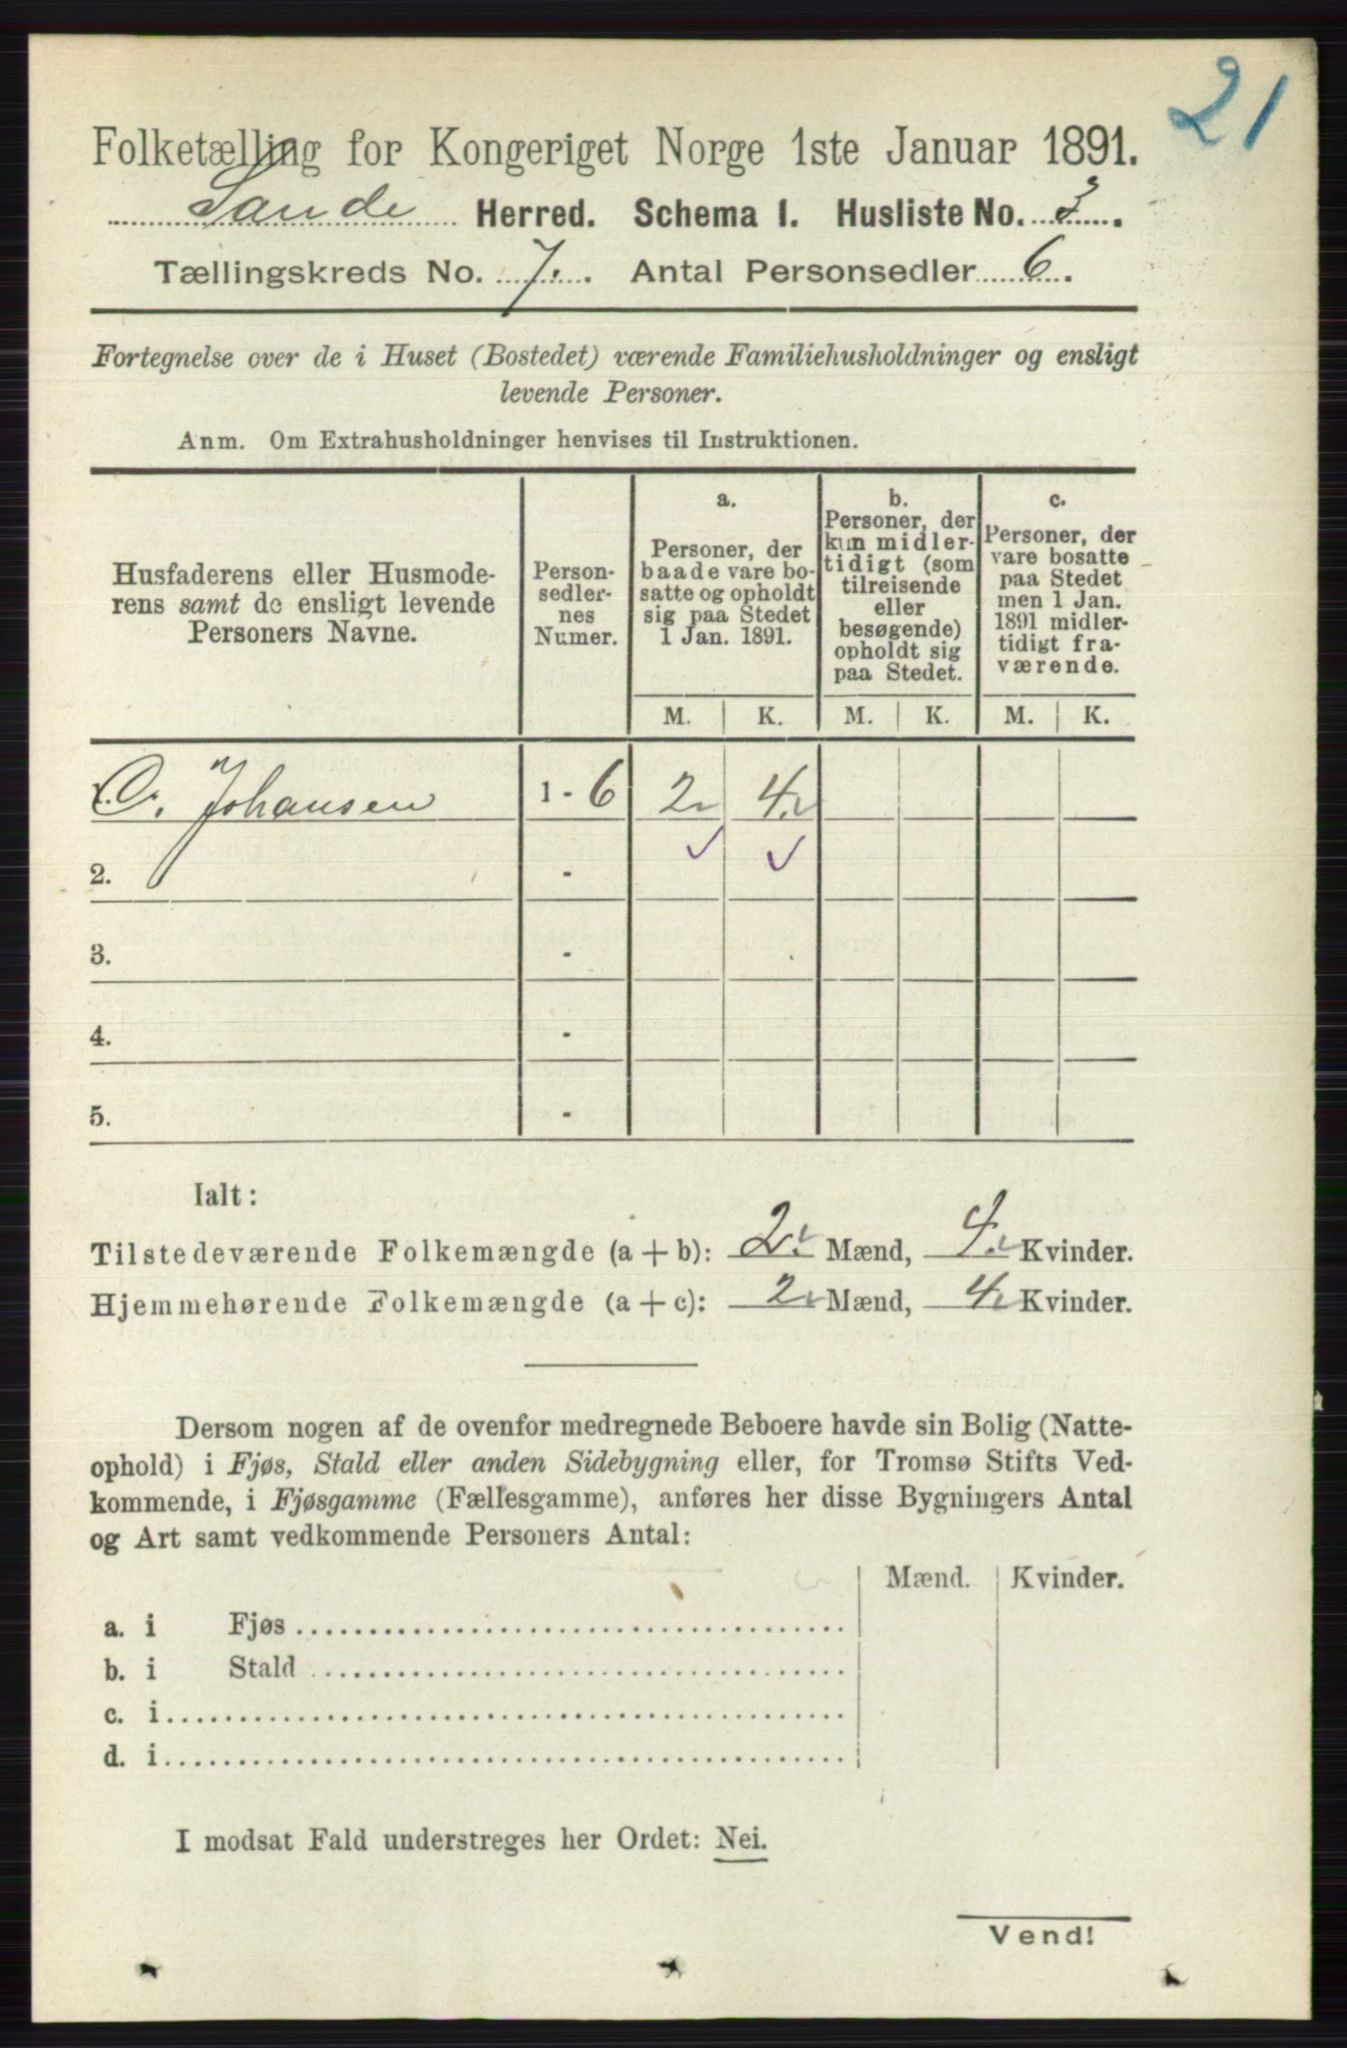 21
Folketælling for Kongeriget Norge 1ste Januar 1891.
Sande Herred. Schema 1. Husliste No. 3.
Tællingskreds No. 7. Antal Personsedler 6.
Fortegnelse over de i Huset (Bostedet) værende Familiehusholdninger og ensligt
levende Personer.
Anm. Om Extrahusholdninger henvises til Instruktionen.
Husfaderens eller Husmode-
rens samt de ensligt levende
Personers Navne.
Person-
sedler-
nes
Numer.
a.
Personer, der
baade vare bo-
satte og opholdt
sig paa Stedet
1 Jan. 1891.
b.
Personer, der
kun midler-
tidigt (som
tilreisende
eller
besøgende)
opholdt sig
paa Stedet.
c.
Personer, der
vare bosatte
paa Stedet
men 1 Jan.
1891 midler-
tidigt fra-
værende.
M. K. M. K. M. K.
1. O. Johansen 1 - 6 2 4
2. -
3. -
4. -
5. -
Ialt:
Tilstedeværende Folkemængde (a + b): 2 Mænd, 4 Kvinder.
Hjemmehørende Folkemængde (a + c): 2 Mænd, 4 Kvinder.
Dersom nogen af de ovenfor medregnede Beboere havde sin Bolig (Natte-
ophold) i Fjøs, Stald eller anden Sidebygning eller, for Tromsø Stifts Ved-
kommende, i Fjøsgamme (Fællesgamme), anføres her disse Bygningers Antal
og Art samt vedkommende Personers Antal:
Mænd. Kvinder.
a. i Fjøs
b. i Stald
c. i
d. i
I modsat Fald understreges her Ordet: Nei.
Vend!